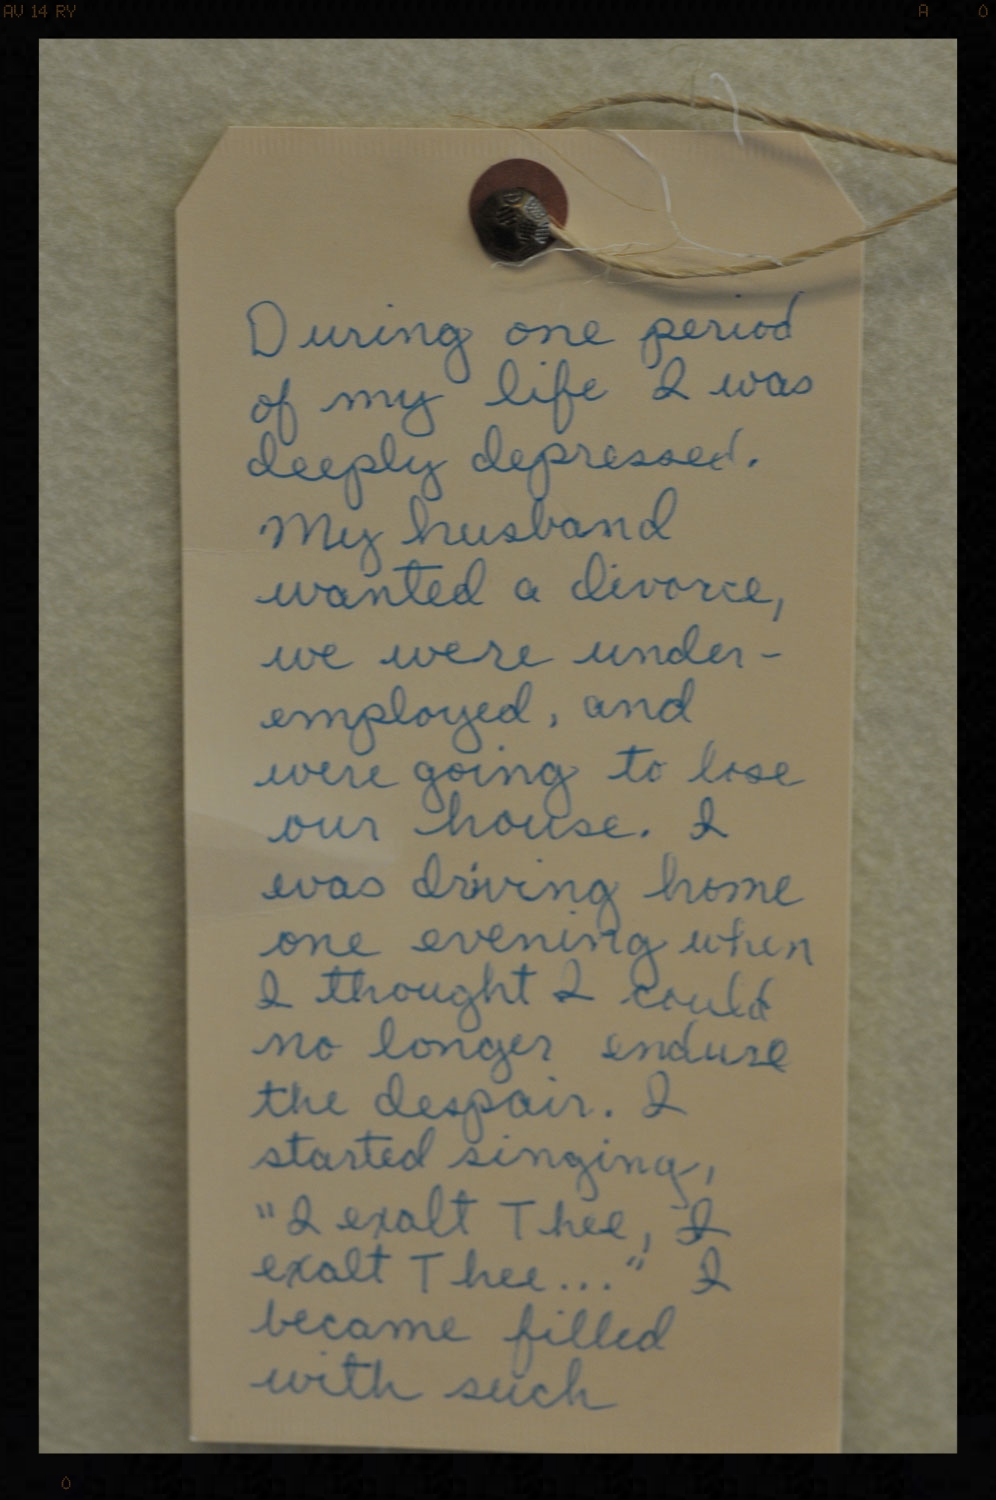 AV 14 RY
A 0
During one period
of my life I was
deeply depressed.
My husband
wanted a divorce,
we were under-
employed, and
were going to lose
our house. I
was driving home
one evening when
I thought I could
no longer endure
the despair. I
started singing,
"I exalt Thee, I
exalt Thee..." I
became filled
with such
0